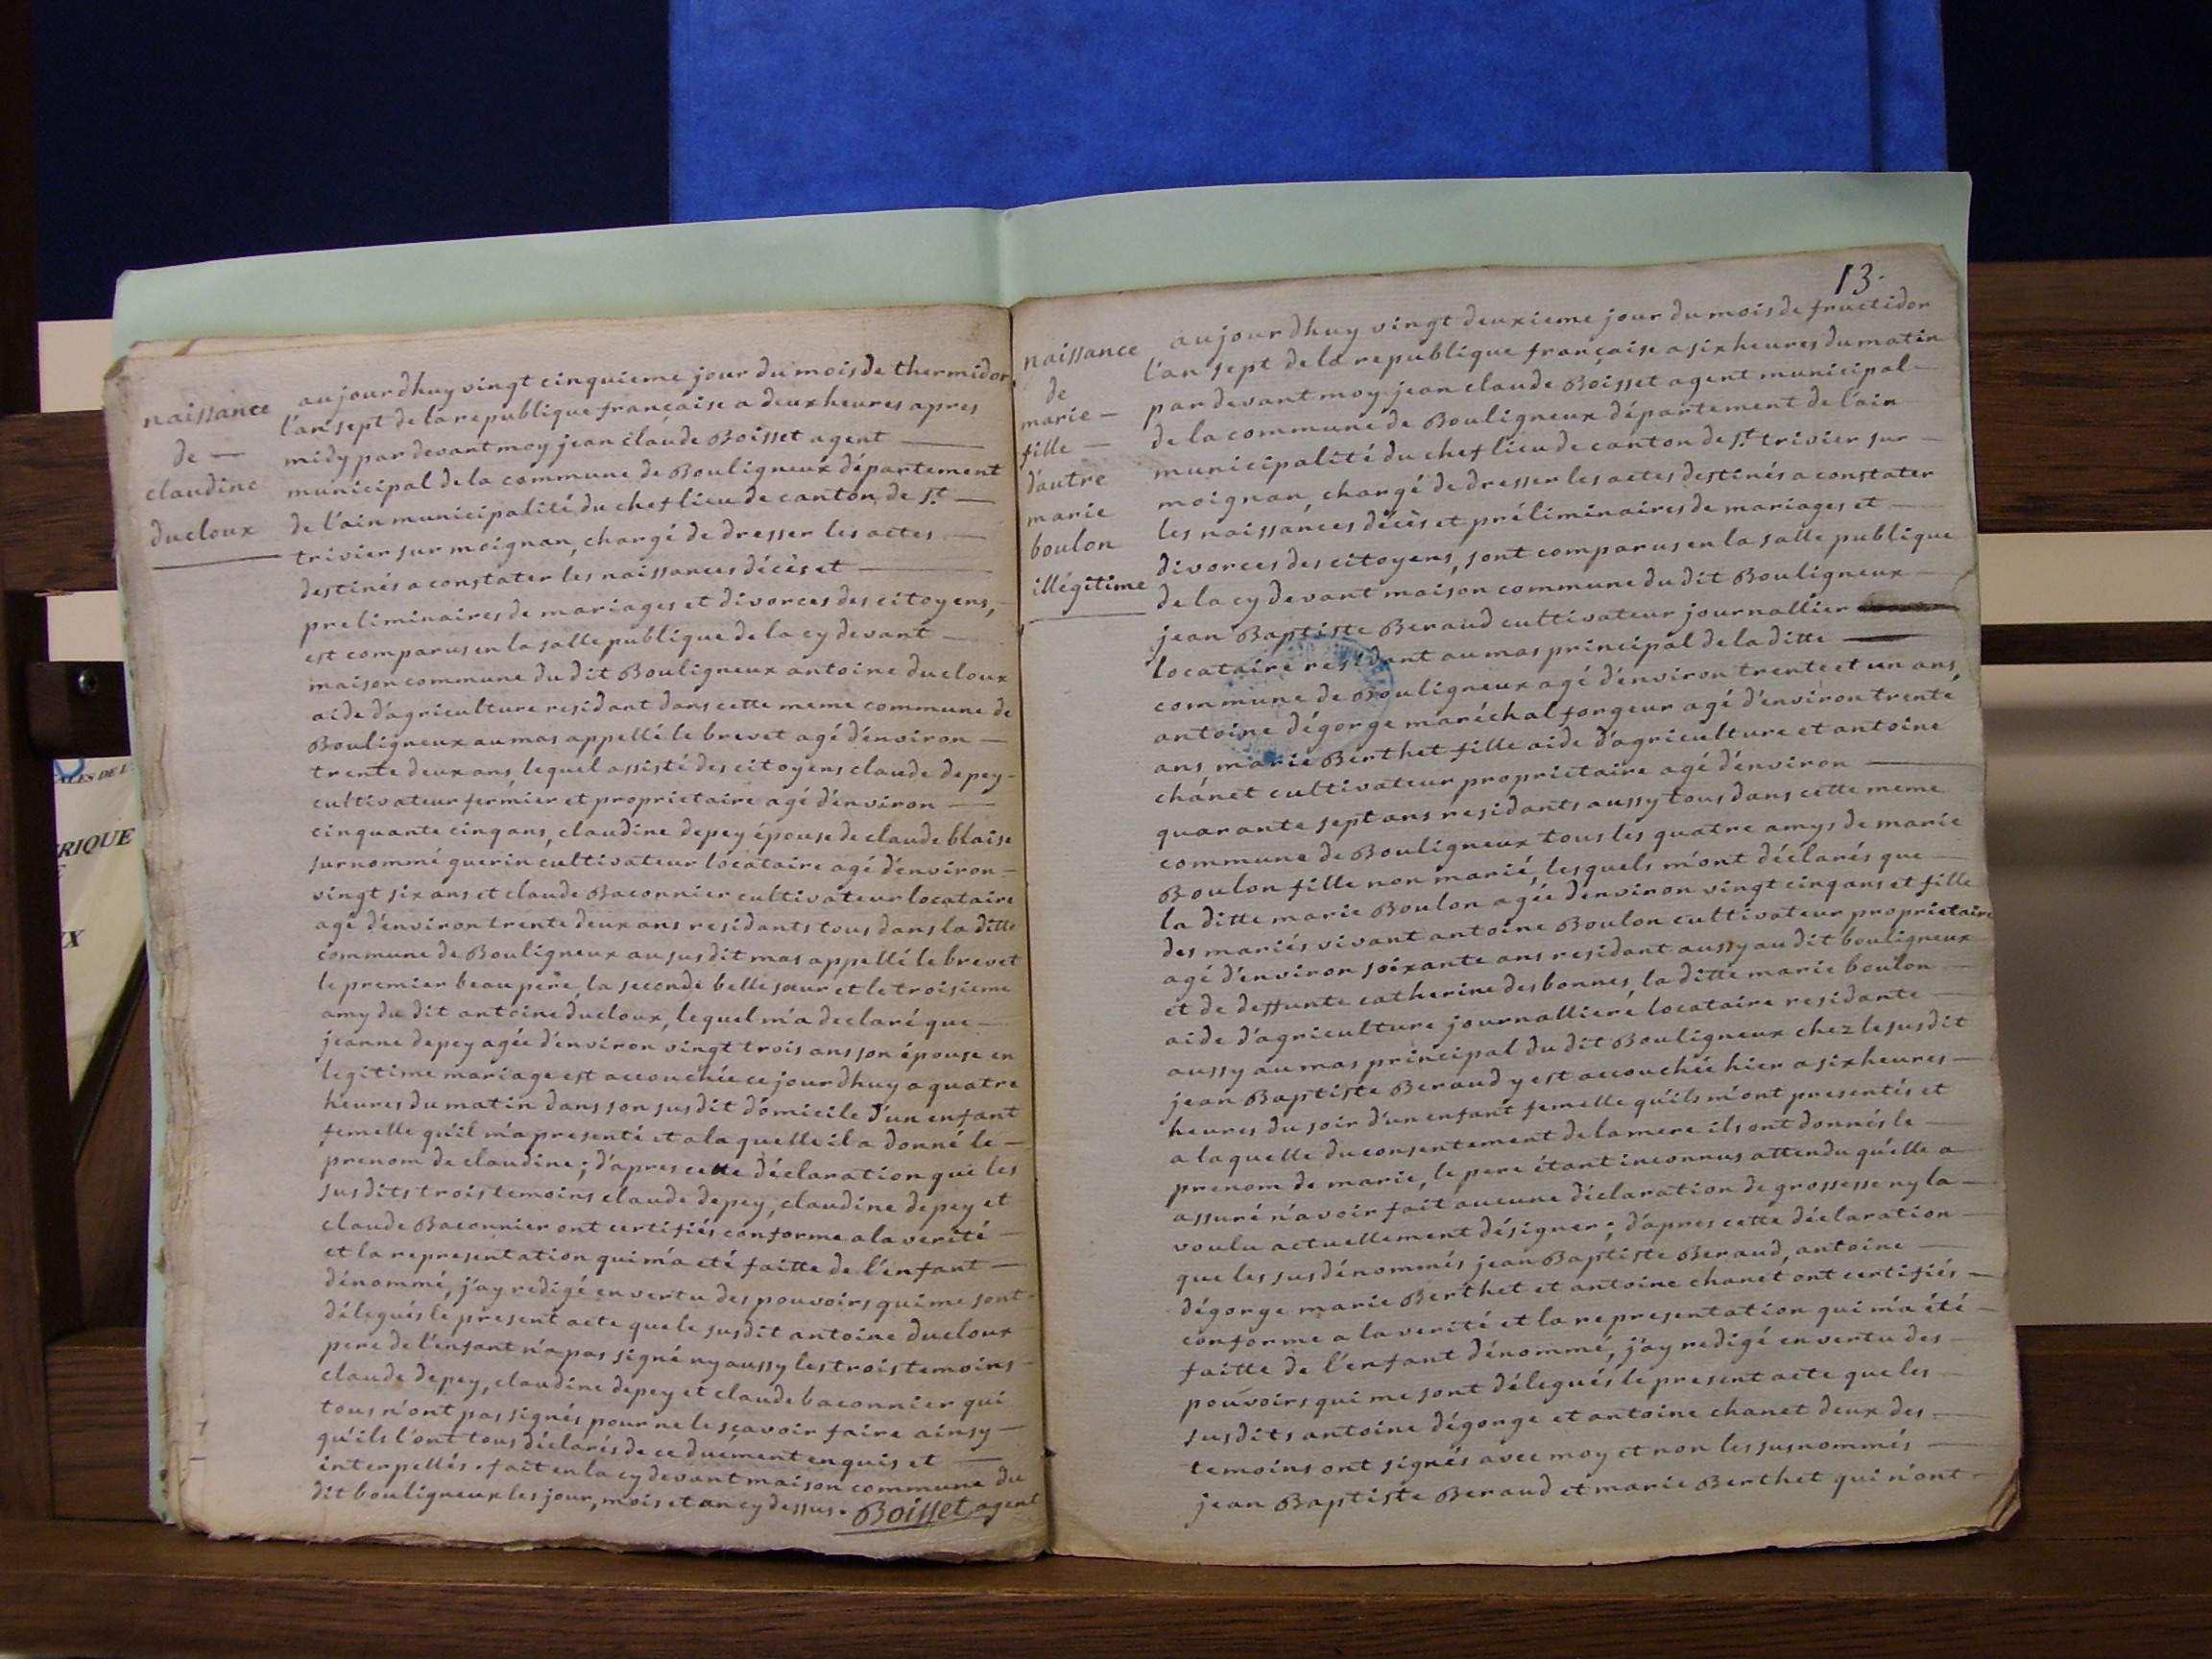 naissance
de —
claudine
ducloux
aujourdhuy vingt cinquieme jour du mois de thermidor
l'an sept de la republique française a deux heures apres
midy par devant moy jean claude Boisset agent —
municipal de la commune de Bouligneux département
de l'ain municipalité du chef lieu de canton de St —
trivier sur moignan, chargé de dresser les actes —
destinés a constater les naissances décès et —
preliminaires de mariages et divorces des citoyens,
est comparus en la salle publique de la cy devant —
maison commune du dit Bouligneux antoine ducloux
aide d'agriculture residant dans cette meme commune de
Bouligneux au mas appellé le brevet agé d'environ —
trente deux ans, lequel assisté des citoyens claude depey -
cultivateur fermier et proprietaire agé d'environ —
cinquante cinq ans, claudine depey épouse de claude blaise
surnommé guerin cultivateur locataire agé d'environ -
vingt six ans et claude Baconnier cultivateur locataire
agé d'environ trente deux ans residants tous dans la ditte
commune de Bouligneux au susdit mas appellé le brevet
le premier beau père, la seconde belle sœur et le troisieme
amy du dit antoine ducloux, lequel m'a declaré que —
jeanne depey agée d'environ vingt trois ans son épouse en
legitime mariage est accouchée ce jourdhuy a quatre
heures du matin dans son susdit domicile d'un enfant
femelle qu'il m'a presenté et a la quelle il a donné le —
prenom de claudine ; d'apres cette déclaration que les
susdits trois temoins claude depey, claudine depey et
claude Baconnier ont certifiés conforme a la verité —
et la representation qui m'a eté faitte de l'enfant —
dénommé, j'ay redigé en vertu des pouvoirs qui me sont -
délegués le present acte que le susdit antoine ducloux
pere de l'enfant n'a pas signé ny aussy les trois temoins -
claude depey, claudine depey et claude baconnier qui
tous n'ont pas signés pour ne le sçavoir faire ainsy —
qu'ils l'ont tous déclarés de ce duément enquis et —
interpellés . fait en la cy devant maison commune du
dit bouligneux les jour, mois et an cy dessus . Boisset agent
13.
naissance
de
marie —
fille —
d'autre
marie
boulon
illégitime
aujourdhuy vingt deuxieme jour du mois de fructidor
l'an sept de la republique française a six heures du matin
par devant moy jean claude Boisset agent municipal —
de la commune de Bouligneux département de l'ain
municipalité du chef lieu de canton de St trivier sur —
moignan, chargé de dresser les actes destinés a constater
les naissances décès et préliminaires de mariages et —
divorces des citoyens, sont comparus en la salle publique
de la cy devant maison commune du dit Bouligneux —
jean Baptiste Beraud cultivateur journallier
locataire residant au mas principal de la ditte —
commune de Bouligneux agé d'environ trente et un ans,
antoine dégorge maréchal forgeur agé d'environ trente
ans, marie Berthet fille aide d'agriculture et antoine
chanet cultivateur proprietaire agé d'environ —
quarante sept ans residants aussy tous dans cette meme
commune de Bouligneux tous les quatre amys de marie
Boulon fille non marié, lesquels m'ont déclarés que —
la ditte marie Boulon agée d'environ vingt cinq ans et fille
des mariés vivant antoine Boulon cultivateur proprietaire
agé d'environ soixante ans residant aussy au dit bouligneux
et de deffunte catherine desbonnes, la ditte marie boulon —
aide d'agriculture journalliere locataire residante —
aussy au mas principal du dit Bouligneux chez le susdit
jean Baptiste Beraud y est accouchée hier a six heures —
heures du soir d'un enfant femelle qu'ils m'ont presentés et
a laquelle du consentement de la mere ils ont donnés le —
prenom de marie, le pere étant inconnus attendu qu'elle a
assuré n'avoir fait aucune déclaration de grossesse ny la —
voulu actuellement désigner ; d'apres cette déclaration —
que les susdénommés jean Baptiste Beraud, antoine —
dégorge marie Berthet et antoine chanet ont certifiés —
conforme a la verité et la representation qui m'a été —
faitte de l'enfant dénommé, j'ay redigé en vertu des —
pouvoirs qui me sont délegués le present acte que les —
susdits antoine dégorge et antoine chanet deux des —
temoins ont signés avec moy et non les susnommés —
jean Baptiste Beraud et marie Berthet qui n'ont -
RIQUE
X